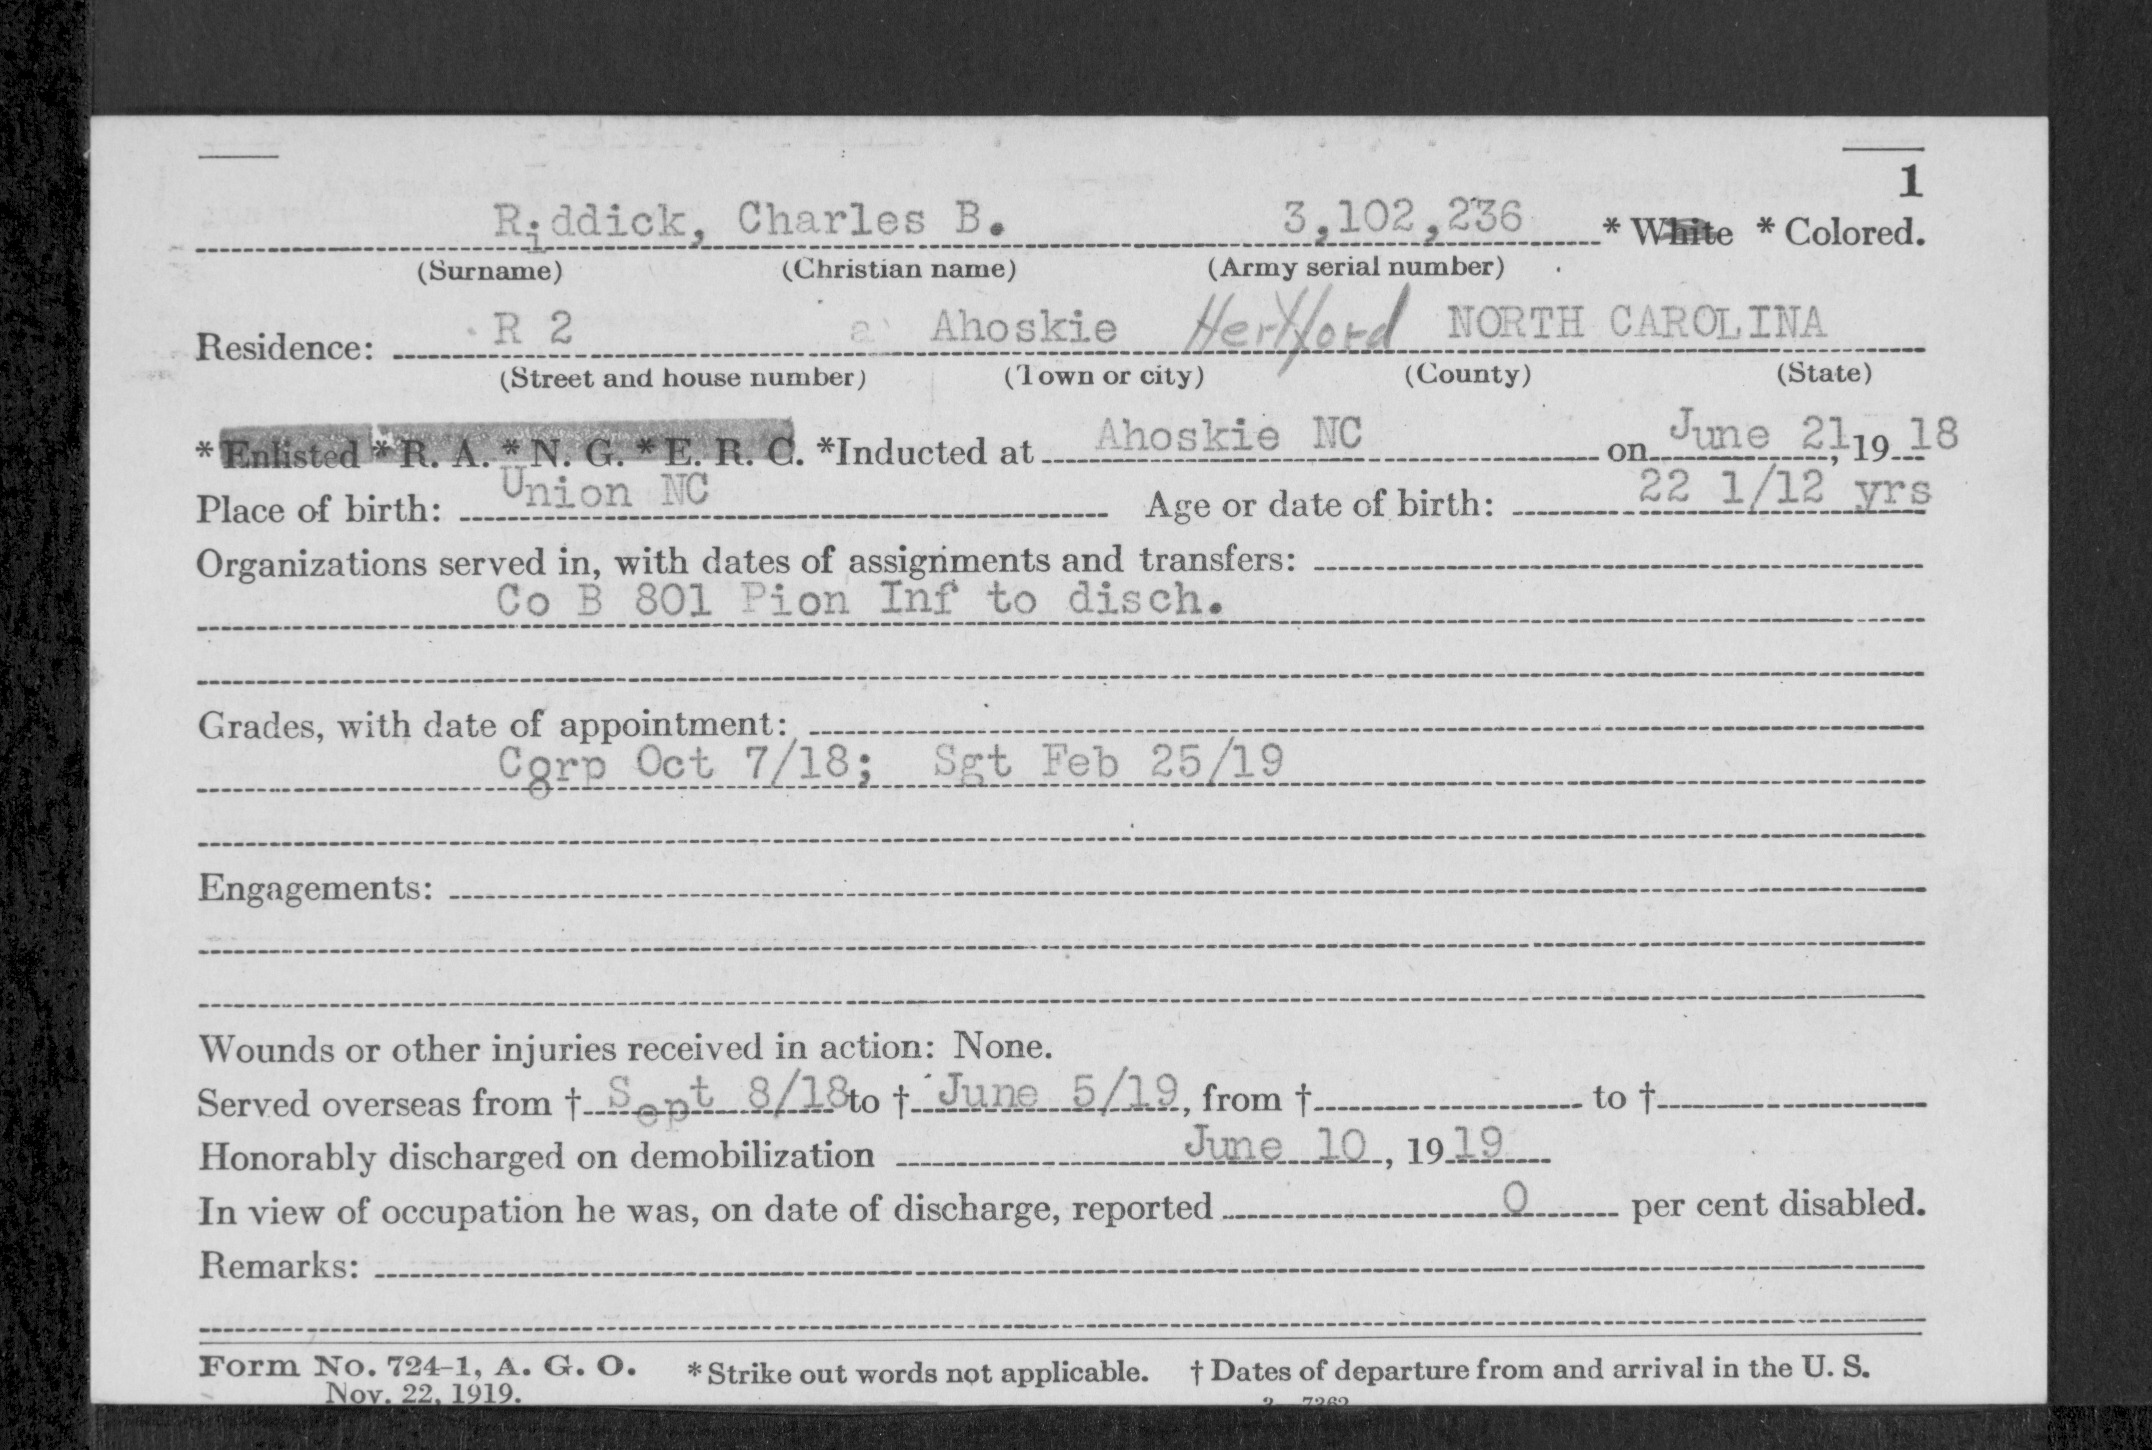 1
Riddick, Charles B. 3,102,236 * White * Colored.
(Surname) (Christian name) (Army serial number)
Residence: R 2 a Ahoskie Hertford NORTH CAROLINA
(Street and house number) (Town or city) (County) (State)
* Enlisted * R. A. * N. G. * E. R. C. *Inducted at Ahoskie NC on June 21, 19 18
Place of birth: Union NC Age or date of birth: 22 1/12 yrs
Organizations served in, with dates of assignments and transfers:
Co B 801 Pion Inf to disch.
Grades, with date of appointment:
Corp Oct 7/18; Sgt Feb 25/19
Engagements:
Wounds or other injuries received in action: None.
Served overseas from † Sept 8/18 to † June 5/19, from † to †
Honorably discharged on demobilization June 10, 19 19
In view of occupation he was, on date of discharge, reported 0 per cent disabled.
Remarks:
Form No. 724-1, A. G. O. * Strike out words not applicable. † Dates of departure from and arrival in the U. S.
Nov. 22, 1919.